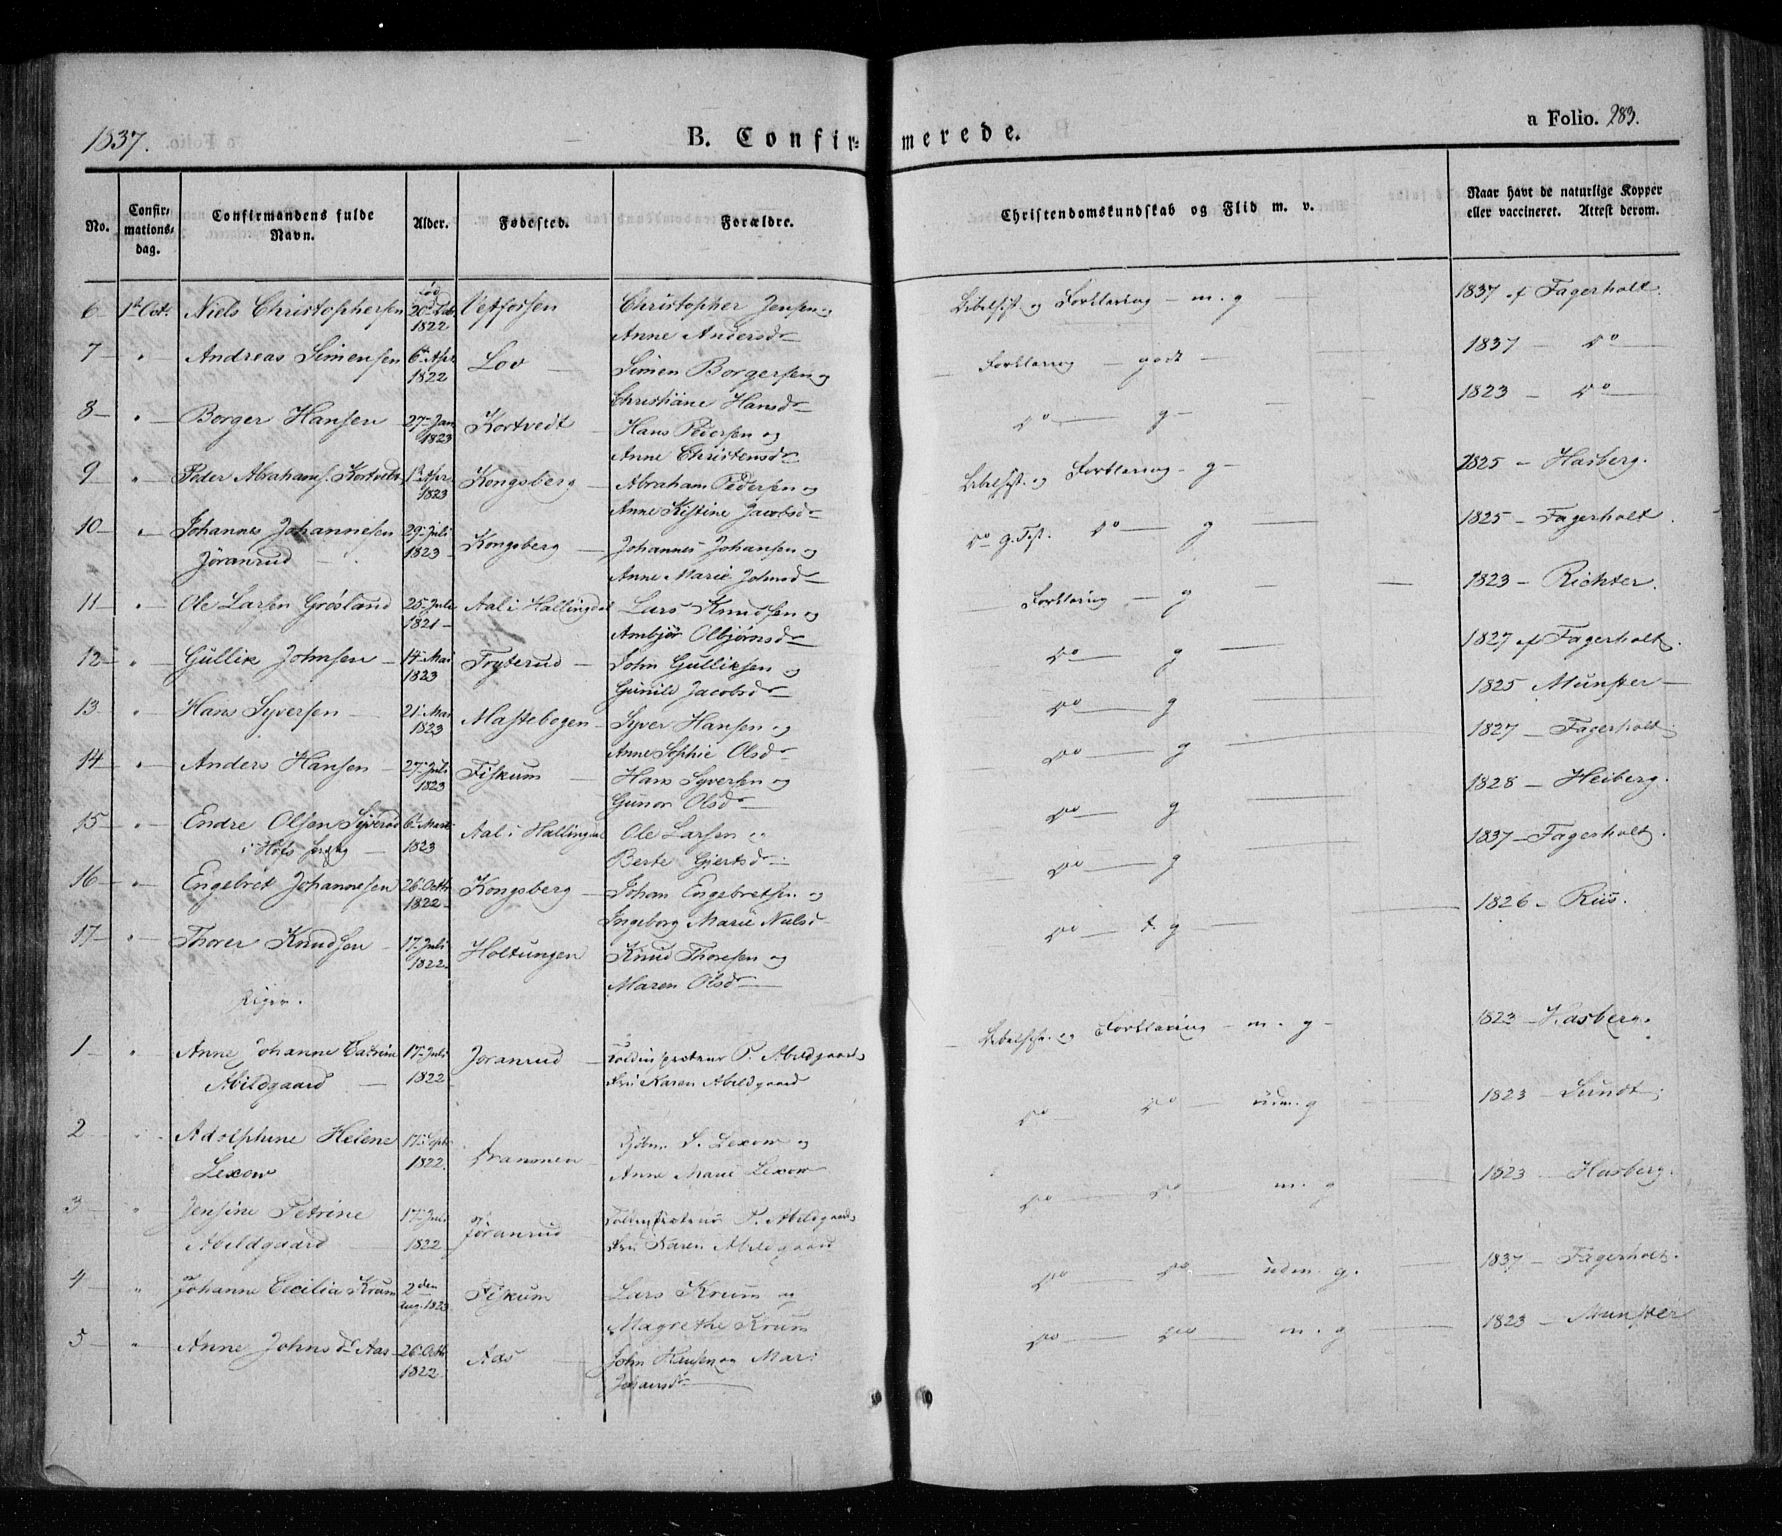 1837.
B. Confirmerede.
a Folio. 283.
No.
Confirmationsdag.
Confirmandens fulde Navn.
Alder.
Fødested.
Forældre.
Christendomskundskab og Flid m. v.
Naar havt de naturlige Kopper eller vaccineret. Attest derom.
6 1st Oct. Niels Christophersen 1822 Vestfossen Christopher Jensen og Forklaring - m. g 1837 af Fagerholt.
Anne Andersd
7 " Andreas Simensen 6t Apr 1822 Lov Simen Borgersen og Forklaring godt 1837 - Do
Christiane Hansd
8 " Borger Hansen 27 Jan 1823 Kortvedt Hans Pedersen og Do g 1823 - Do
Anne Christensd
9 " Peder Abrahams. Kortvedt 1st Apr 1823 Kongsberg Abraham Pedersen og Forklaring - g 1825 - Hasberg.
Anne Kistine Jacobsd
10 " Johannes Johannesen 29 Juli 1823 Kongsberg Johannes Johansen og Do g. Do g 1825 - Fagerholt.
Jøranrud Anne Marie Johnsd
11 " Ole Larsen Grøsland 25 Juli 1821 Aal i Hallingdal Lars Knudsen og Forklaring - g 1823 - Richter.
Ambjør Olbjørnsd
12 " Gullik Johnsen 14 Mai 1823 Fryterud John Gulliksen og Do g 1827 af Fagerholt.
Gunild Jacobsd
13 " Hans Syversen 21 Mai 1823 Mastebogen Syver Hansen og Do g 1825 Munster
Anne Sophie Olsd
14 " Anders Hansen 27 Juli 1823 Fiskum Hans Syversen og Do g 1827 - Fagerholt
Gunor Olsd
15 " Endre Olsen 6 Mart 1823 Aal i Hallingdal Ole Larsen og Do g 1828 - Heiberg.
i Hofs Berte Gjertsd
16 " Engebret Johannesen 26 Octb 1822 Kongsberg Johan Engebretsen og Do g 1837 - Fagerholt.
Ingeborg Marie Nielsd
17 " Thorer Knudsen 17 Juli 1822 Holtungen Knud Thoresen og Do t. g 1826 - Riis.
Maren Olsd
Piger.
1 " Anne Johanne Catrine 17 Juli 1822 Joranrud P. Abildgaard Forklaring - m. g 1823 - Hasberg.
Abildgaard Fru Karen Abildgaard
2 " Adolphine Helene 17 Sept 1822 Drammen S. Lexow og Do Do udm. g 1823 - Lundt
Lexow Anne Marie Lexow
3 " Jensine Petrine 17 Juli 1822 Jøranrud P. Abildgaard Do Do m. g 1823 - Hasberg.
Abildgaard Fru Karen Abildgaard
4 " Johanne Cecilia Krum 2den Aug. 1823 Fiskum Lars Krum og Do Do udm. g. 1837 - Fagerholt.
Magrethe Krum
5 " Anne Johnsd Aas 26 Octb 1822 Aas John og Mari Do Do m. g 1823 - Munster
Johansd